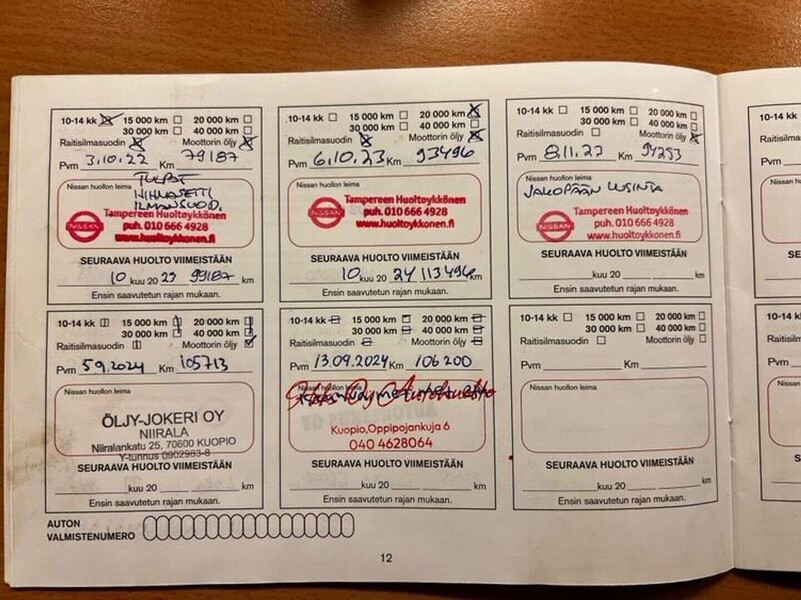 10-14 kk 15 000 km 20 000 km
30 000 km 40 000 km
Raitisilmasuodin Moottorin öljy
Pvm 3.10.22 Km 79187
TULPAT
Nissan huollon leima
HIHNASETTI
ILMANSUOD.
NISSAN
Tampereen Huoltoykkönen
puh. 010 666 4928
www.huoltoykkonen.fi
SEURAAVA HUOLTO VIIMEISTÄÄN
10 kuu 20 23 99187 km
Ensin saavutetun rajan mukaan.
10-14 kk 15 000 km 20 000 km
30 000 km 40 000 km
Raitisilmasuodin Moottorin öljy
Pvm 6.10.23 Km 93496
Nissan huollon leima
NISSAN
Tampereen Huoltoykkönen
puh. 010 666 4928
www.huoltoykkonen.fi
SEURAAVA HUOLTO VIIMEISTÄÄN
10 kuu 20 24 113496 km
Ensin saavutetun rajan mukaan.
10-14 kk 15 000 km 20 000 km
30 000 km 40 000 km
Raitisilmasuodin Moottorin öljy
Pvm 8.11.23 Km 94253
Nissan huollon leima
JAKOPÄÄN UUSINTA
NISSAN
Tampereen Huoltoykkönen
puh. 010 666 4928
www.huoltoykkonen.fi
SEURAAVA HUOLTO VIIMEISTÄÄN
kuu 20 km
Ensin saavutetun rajan mukaan.
10-14 kk
Raitisilma
Pvm
Nissan
SEURA
Ens
10-14 kk 15 000 km 20 000 km
30 000 km 40 000 km
Raitisilmasuodin Moottorin öljy
Pvm 5.9.2024 Km 105713
Nissan huollon leima
ÖLJY-JOKERI OY
NIIRALA
Niiralankatu 25, 70600 KUOPIO
Y-tunnus 0902983-8
SEURAAVA HUOLTO VIIMEISTÄÄN
kuu 20 km
Ensin saavutetun rajan mukaan.
10-14 kk 15 000 km 20 000 km
30 000 km 40 000 km
Raitisilmasuodin Moottorin öljy
Pvm 13.09.2024 Km 106200
Nissan huollon leima
Kuopio, Oppipojankuja 6
040 4628064
SEURAAVA HUOLTO VIIMEISTÄÄN
kuu 20 km
Ensin saavutetun rajan mukaan.
10-14 kk 15 000 km 20 000 km
30 000 km 40 000 km
Raitisilmasuodin Moottorin öljy
Pvm Km
Nissan huollon leima
SEURAAVA HUOLTO VIIMEISTÄÄN
kuu 20 km
Ensin saavutetun rajan mukaan.
10-14 kk
Raitisilma
Pvm
Nissan
SEURA
Ens
AUTON
VALMISTENUMERO
12